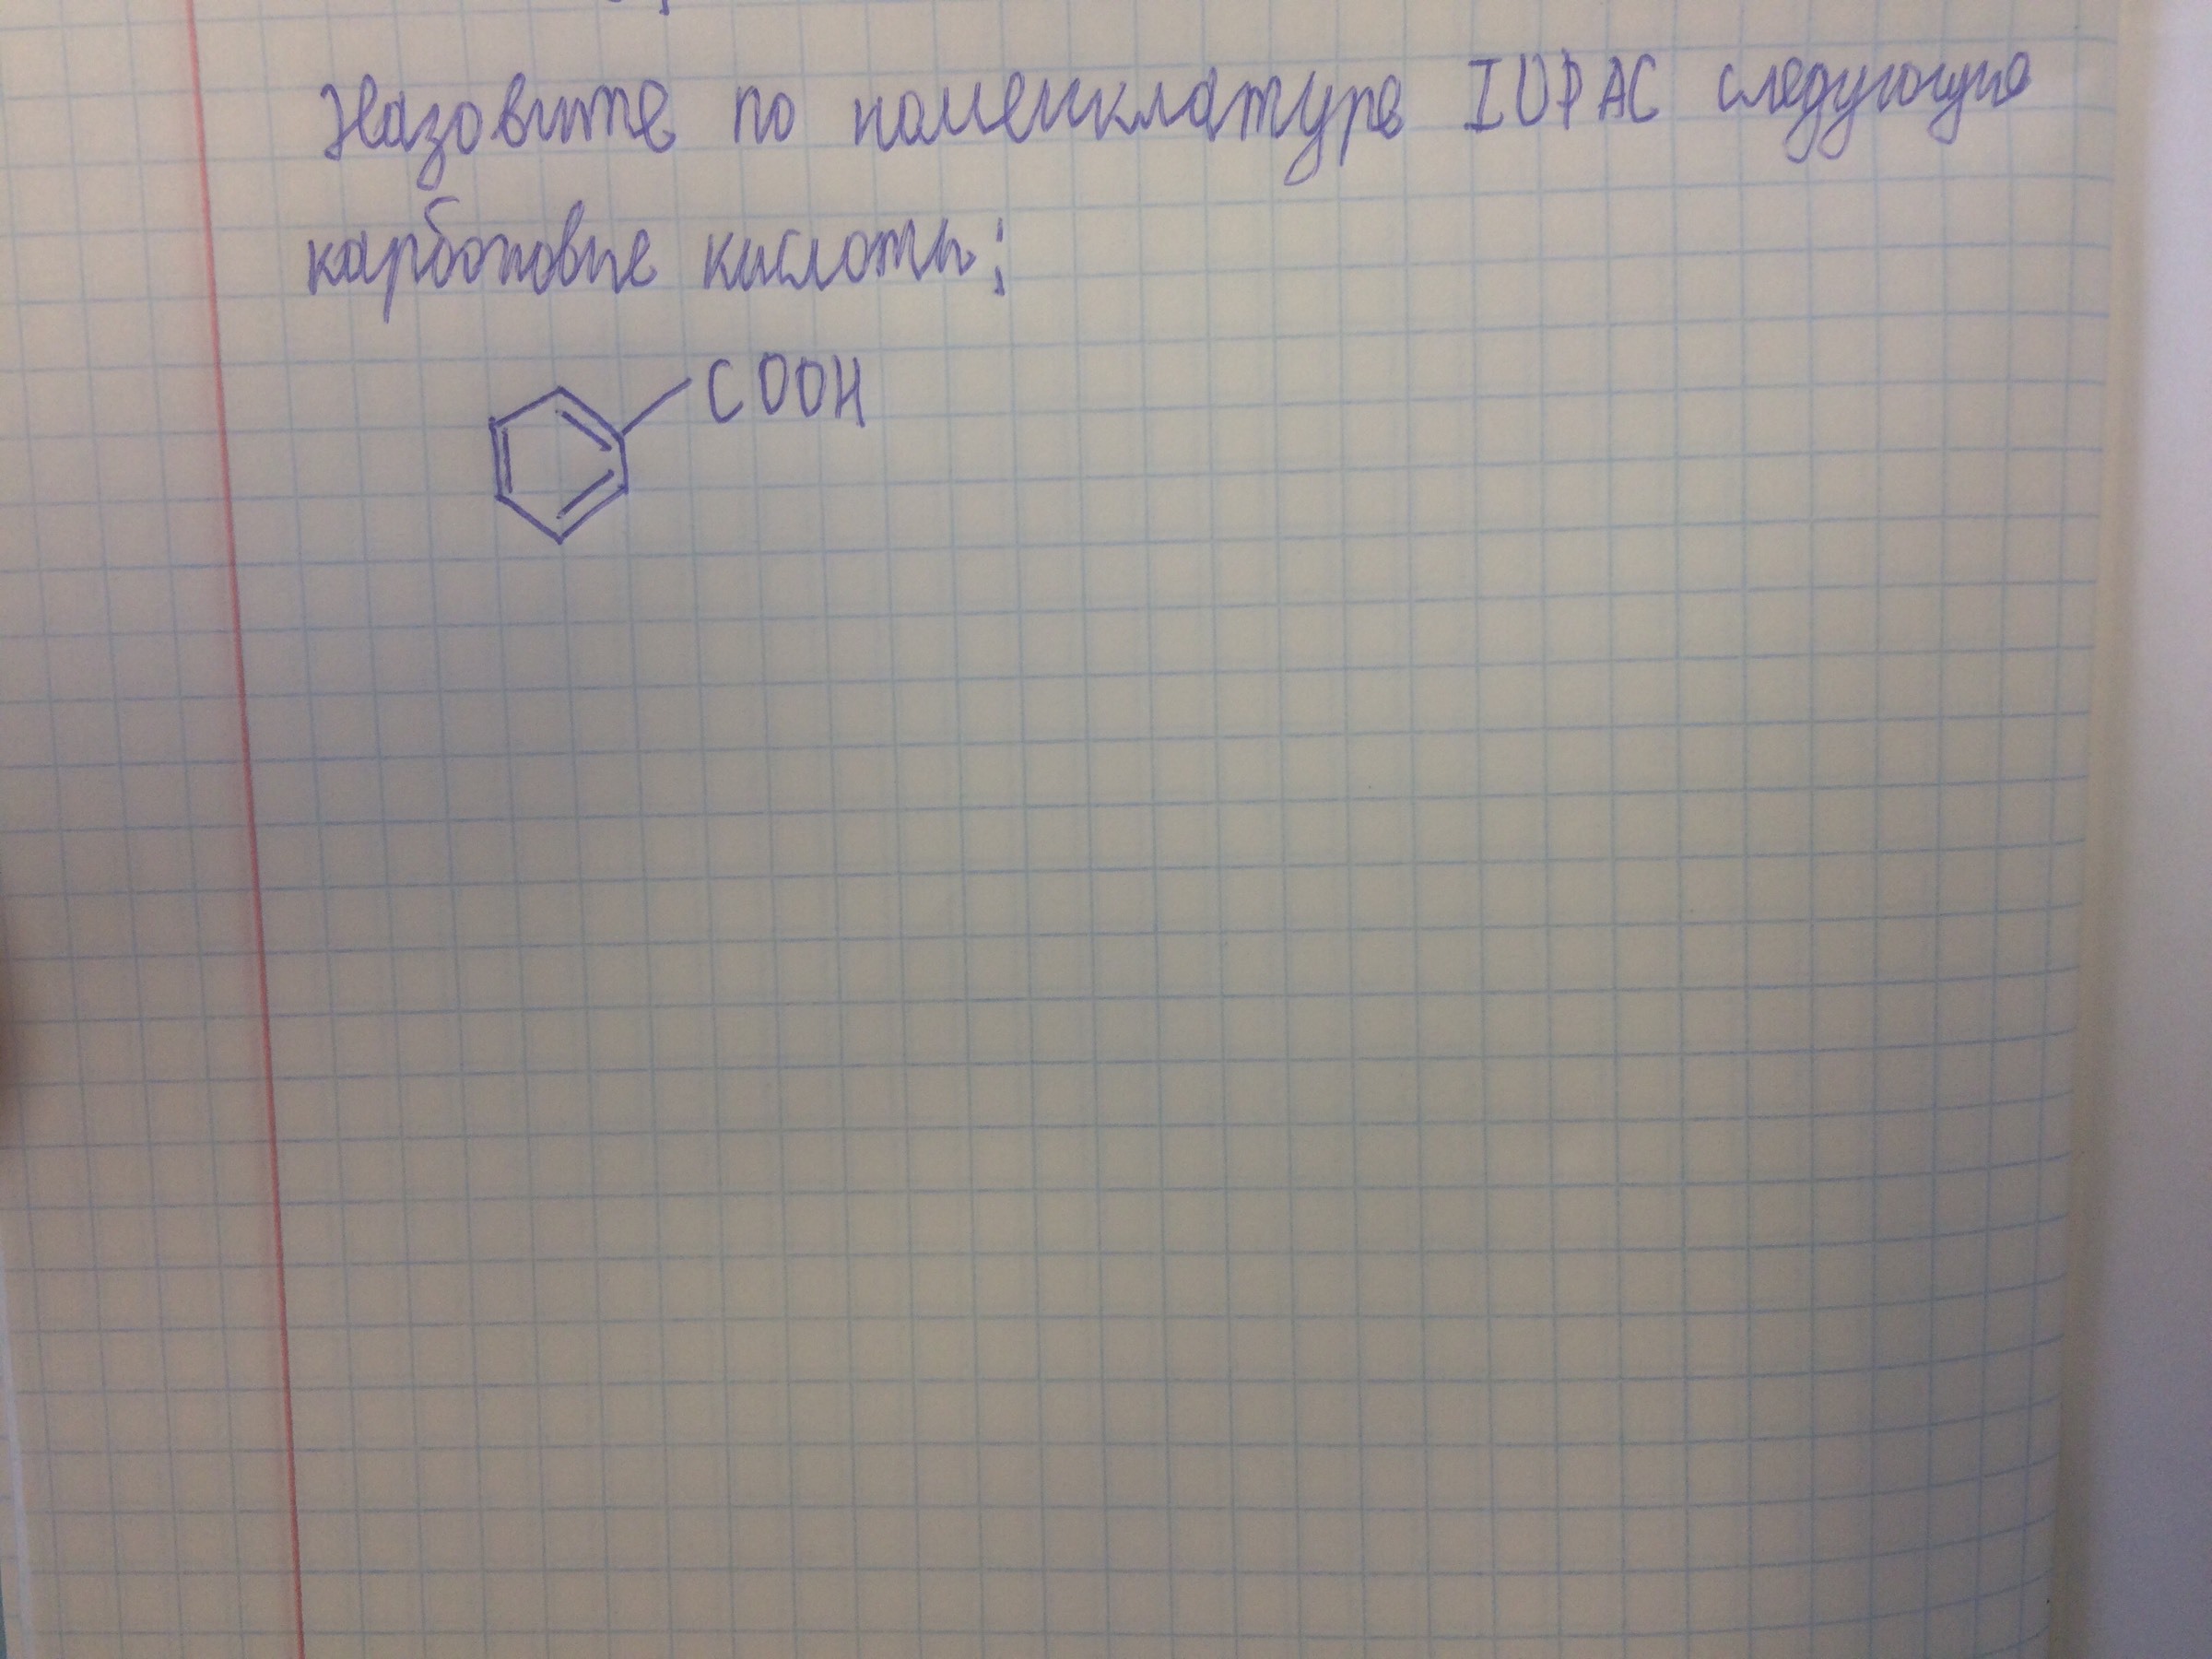 Назовите по номенклатуре IUPAC следующие
карбоновые кислоты:
COOH